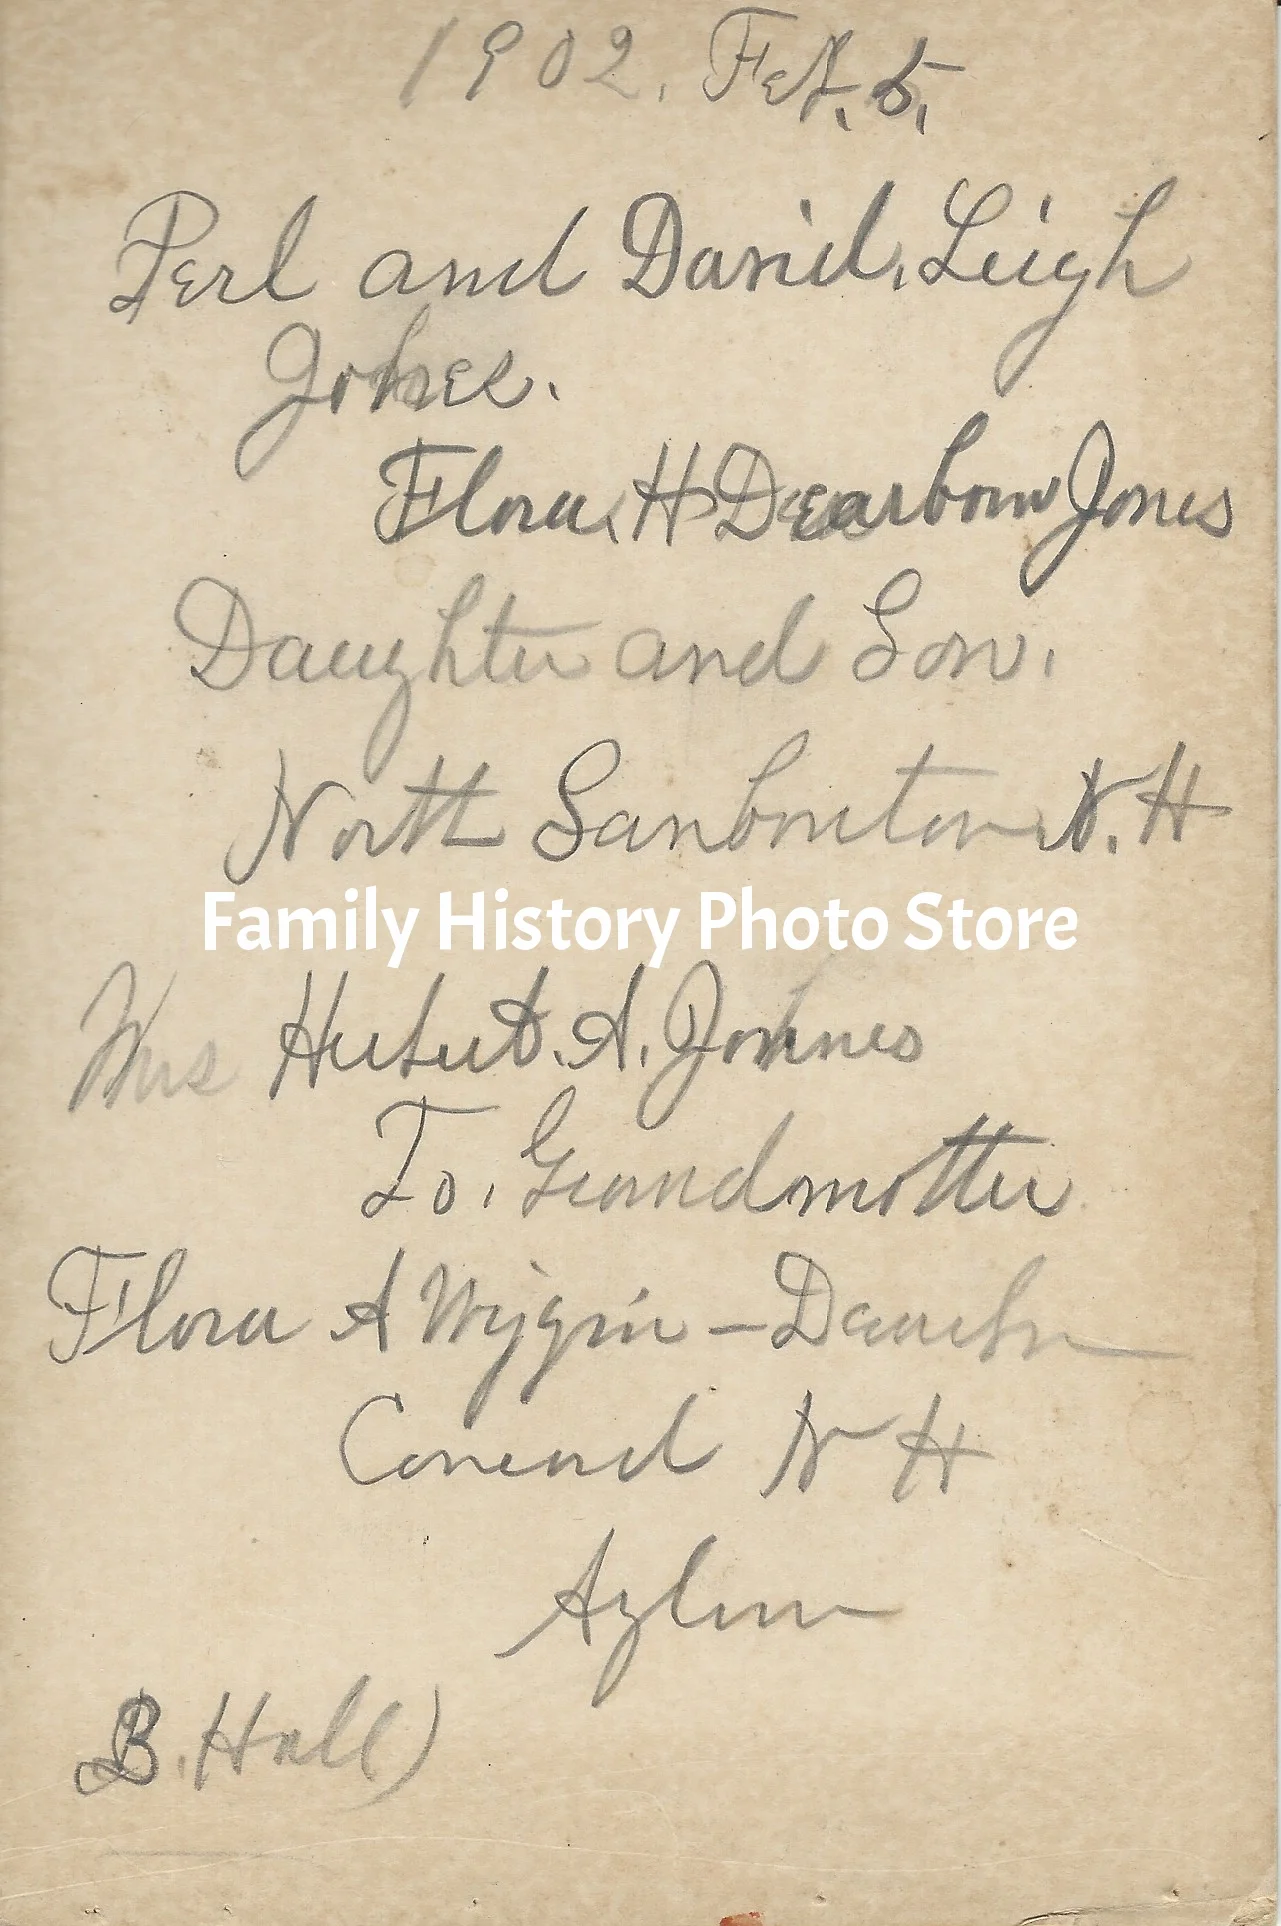 1902. Feb. 5.
Perl and David. Leigh
Jones.
Flora. H Dearborn Jones
Daughter and Son.
North Sanbornton N.H
Family History Photo Store
Mrs Hubert. A. Johnes
To. Grandmother
Flora A Wiggin - 
Concord N H
Azlum
B. Hall)